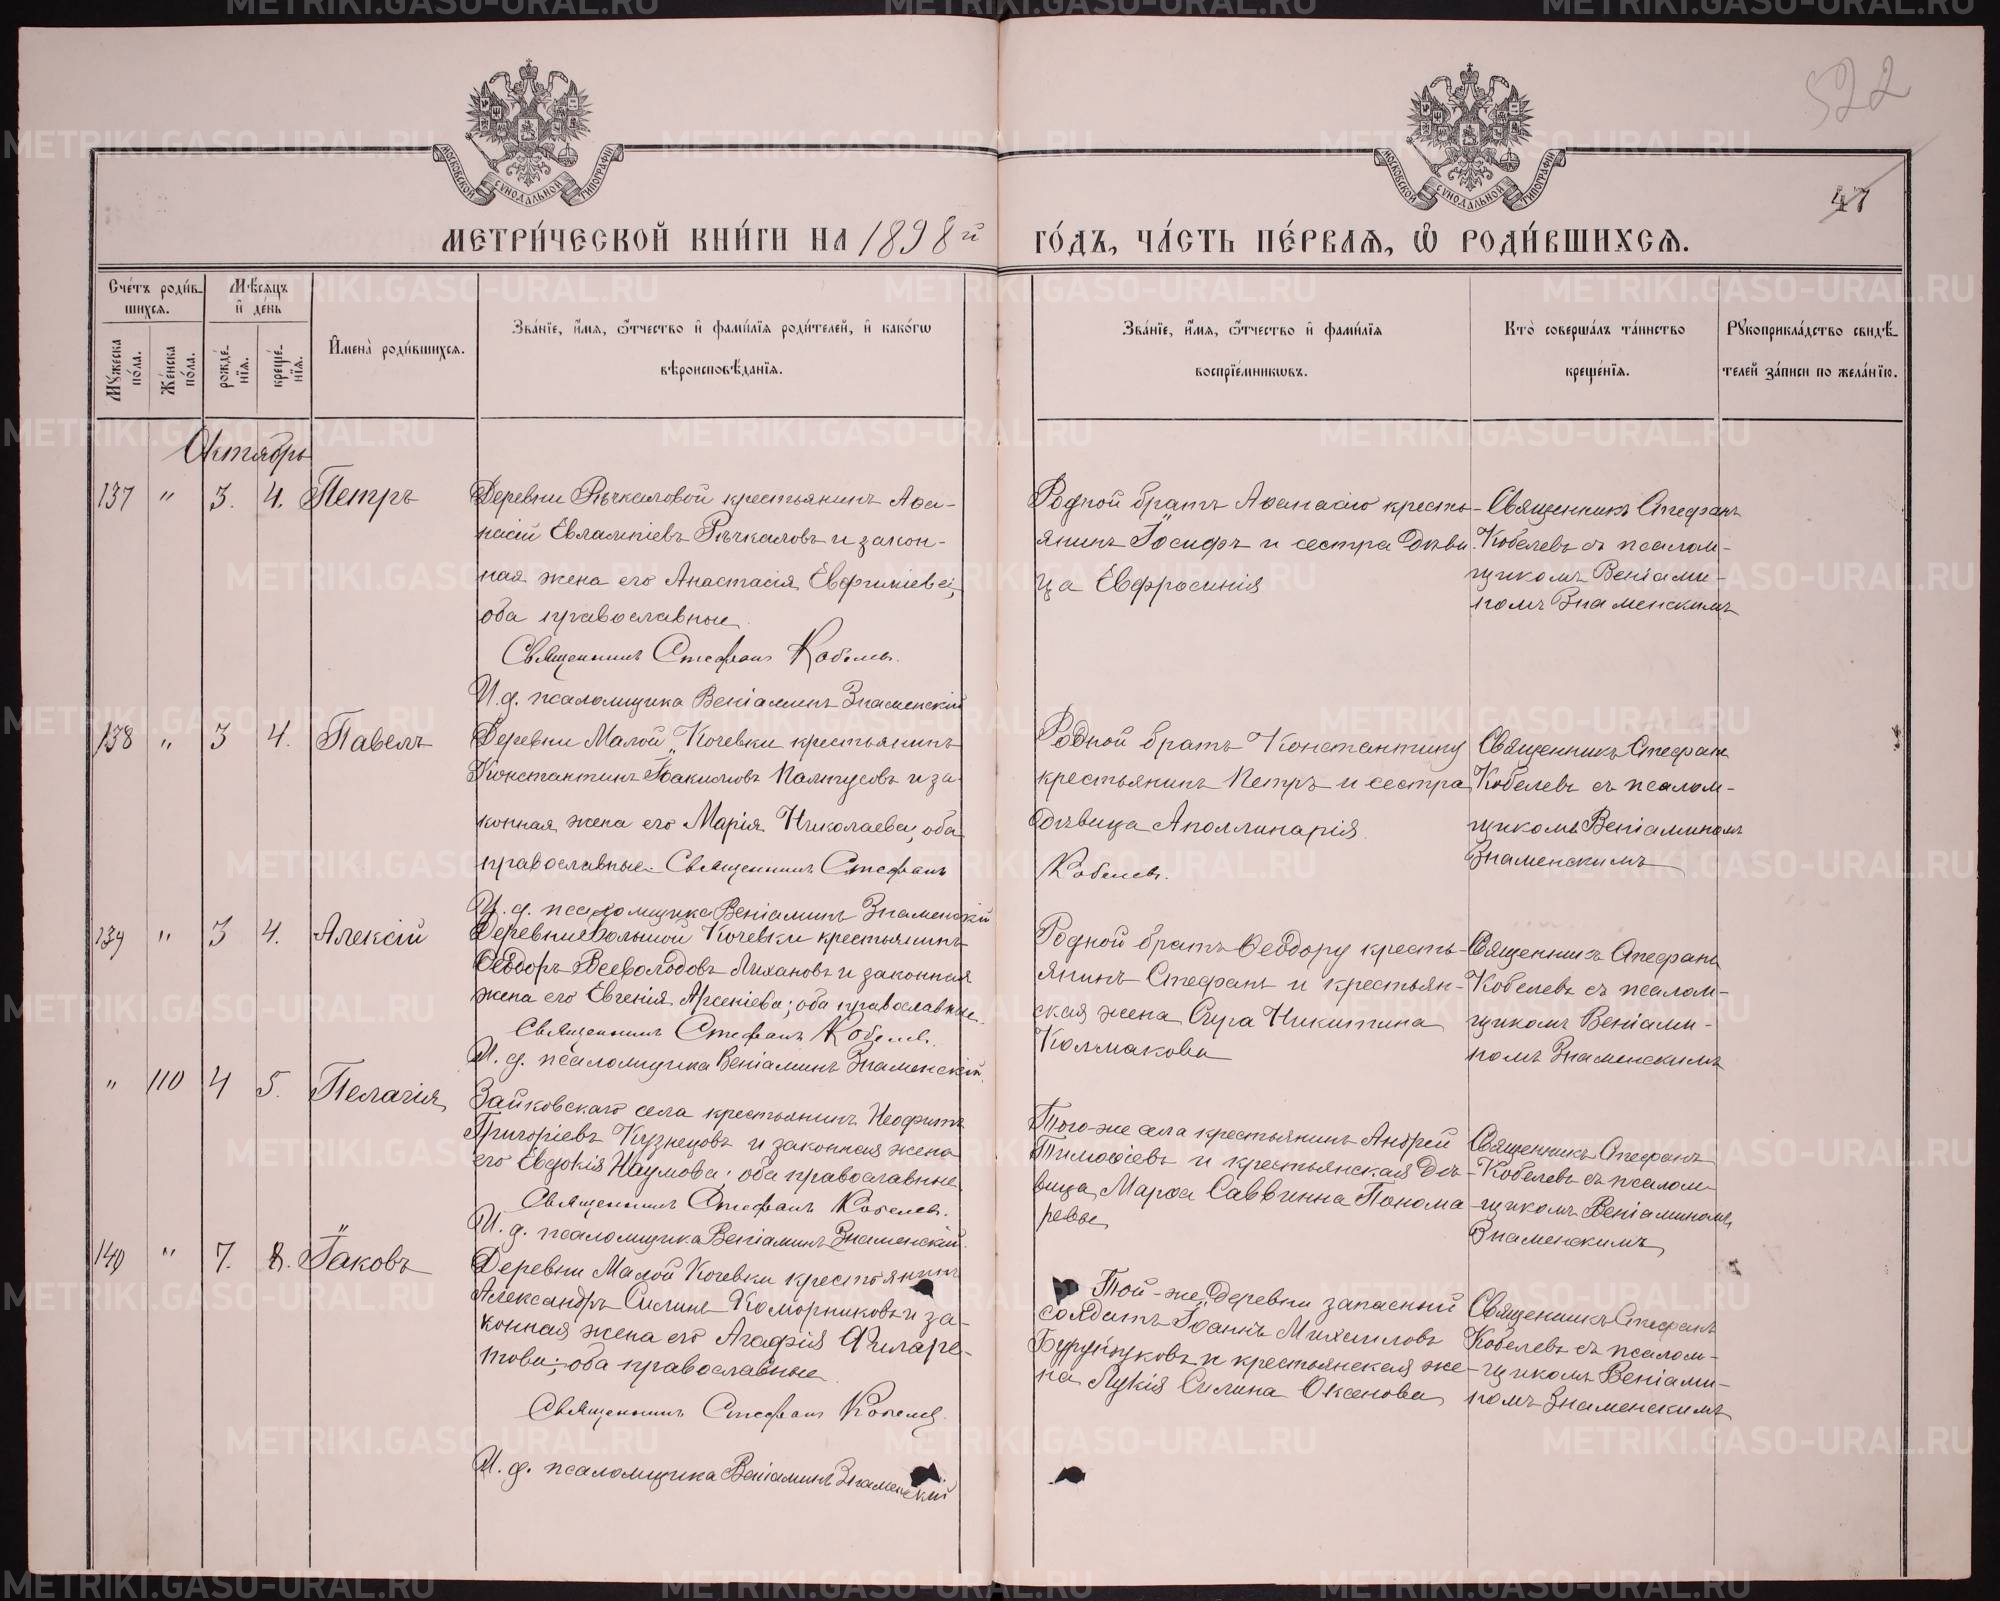 522
47
МОСКОВСКОЙ СѴНОДАЛЬНОЙ ТИПОГРАФІИ
МОСКОВСКОЙ СѴНОДАЛЬНОЙ ТИПОГРАФІИ
МЕТРИ́ЧЕСКОЙ КНИ́ГИ НА 1898й ГО́ДЪ, ЧА́СТЬ ПЕ́РВАѦ, Ѽ РОДИ́ВШИХСѦ.
Сче́тъ роди́в-
шихсѧ.
Мꙋ́жеска по́ла.
Же́нска по́ла.
Мѣ́сѧцъ
и҆ де́нь
рожде́-
нїѧ.
креще́-
нїѧ.
И҆мена̀ роди́вшихсѧ.
Зва́нїе, и҆́мѧ, ѻ҆́тчество и҆ фами́лїѧ роди́телей, и҆ како́гѡ
вѣроисповѣ́данїѧ.
Зва́нїе, и҆́мѧ, ѻ҆́тчество и҆ фами́лїѧ
воспрїе́мникѡвъ.
Кто̀ соверша́лъ та́инство
креще́нїѧ.
Рꙋкоприкла́дство свидѣ́-
телей за́писи по жела́нїю.
Октябрь
137 " 3. 4. Петръ
Деревни Рѣчкаловой крестьянинъ Аѳа-
насій Евлампіевъ Рѣчкаловъ и закон-
ная жена его Анастасія Евфиміева;
оба православные.
Священникъ Стефанъ Кобелевъ.
И. д. псаломщика Веніаминъ Знаменскій
Родной братъ Аѳанасію кресть-
янинъ Іосифъ и сестра дѣви-
ца Евфросинія
Священникъ Стефанъ
Кобелевъ съ псалом-
щикомъ Веніами-
номъ Знаменскимъ
138 " 3 4. Павелъ
Деревни Малой Кочевки крестьянинъ
Константинъ Іоакимовъ Палтусовъ и за-
конная жена его Марія Николаева; оба
православные. Священникъ Стефанъ
И. д. псаломщика Веніаминъ Знаменскій
Родной братъ Константину
крестьянинъ Петръ и сестра
дѣвица Аполлинарія
Кобелевъ.
Священникъ Стефанъ
Кобелевъ съ псалом-
щикомъ Веніаминомъ
Знаменскимъ
139 " 3 4. Алексій
Деревни Большой Кочевки крестьянинъ
Ѳеодоръ Всеволодовъ Лихановъ и законная
жена его Евгенія Арсеніева; оба православные.
Священникъ Стефанъ Кобелевъ.
И. д. псаломщика Веніаминъ Знаменскій.
Родной братъ Ѳеодору кресть-
янинъ Стефанъ и крестьян-
ская жена Сура Никитина
Колмакова
Священникъ Стефанъ
Кобелевъ съ псалом-
щикомъ Веніами-
номъ Знаменскимъ
" 110 4 5. Пелагія
Зайковскаго села крестьянинъ Неофитъ
Григоріевъ Кузнецовъ и законная жена
его Евдокія Наумова; оба православные.
Священникъ Стефанъ Кобелевъ.
И. д. псаломщика Веніаминъ Знаменскій.
Того-же села крестьянинъ Андрей
Тимоѳіевъ и крестьянская дѣ-
вица Марѳа Саввинна Понома-
ревы
Священникъ Стефанъ
Кобелевъ съ псалом-
щикомъ Веніаминомъ
Знаменскимъ
140 " 7. 8. Іаковъ
Деревни Малой Кочевки крестьянинъ
Александръ Силинъ Коморниковъ и за-
конная жена его Агафія Филаре-
това; оба православные.
Священникъ Стефанъ Кобелев.
И. д. псаломщика Веніаминъ Знаменскій
Той-же деревни запасный
солдатъ Іоаннъ Михаиловъ
Бурундуковъ и крестьянская же-
на Лукія Силина Оксенова
Священникъ Стефанъ
Кобелевъ съ псалом-
щикомъ Веніами-
номъ Знаменскимъ
METRIKI.GASO-URAL.RU